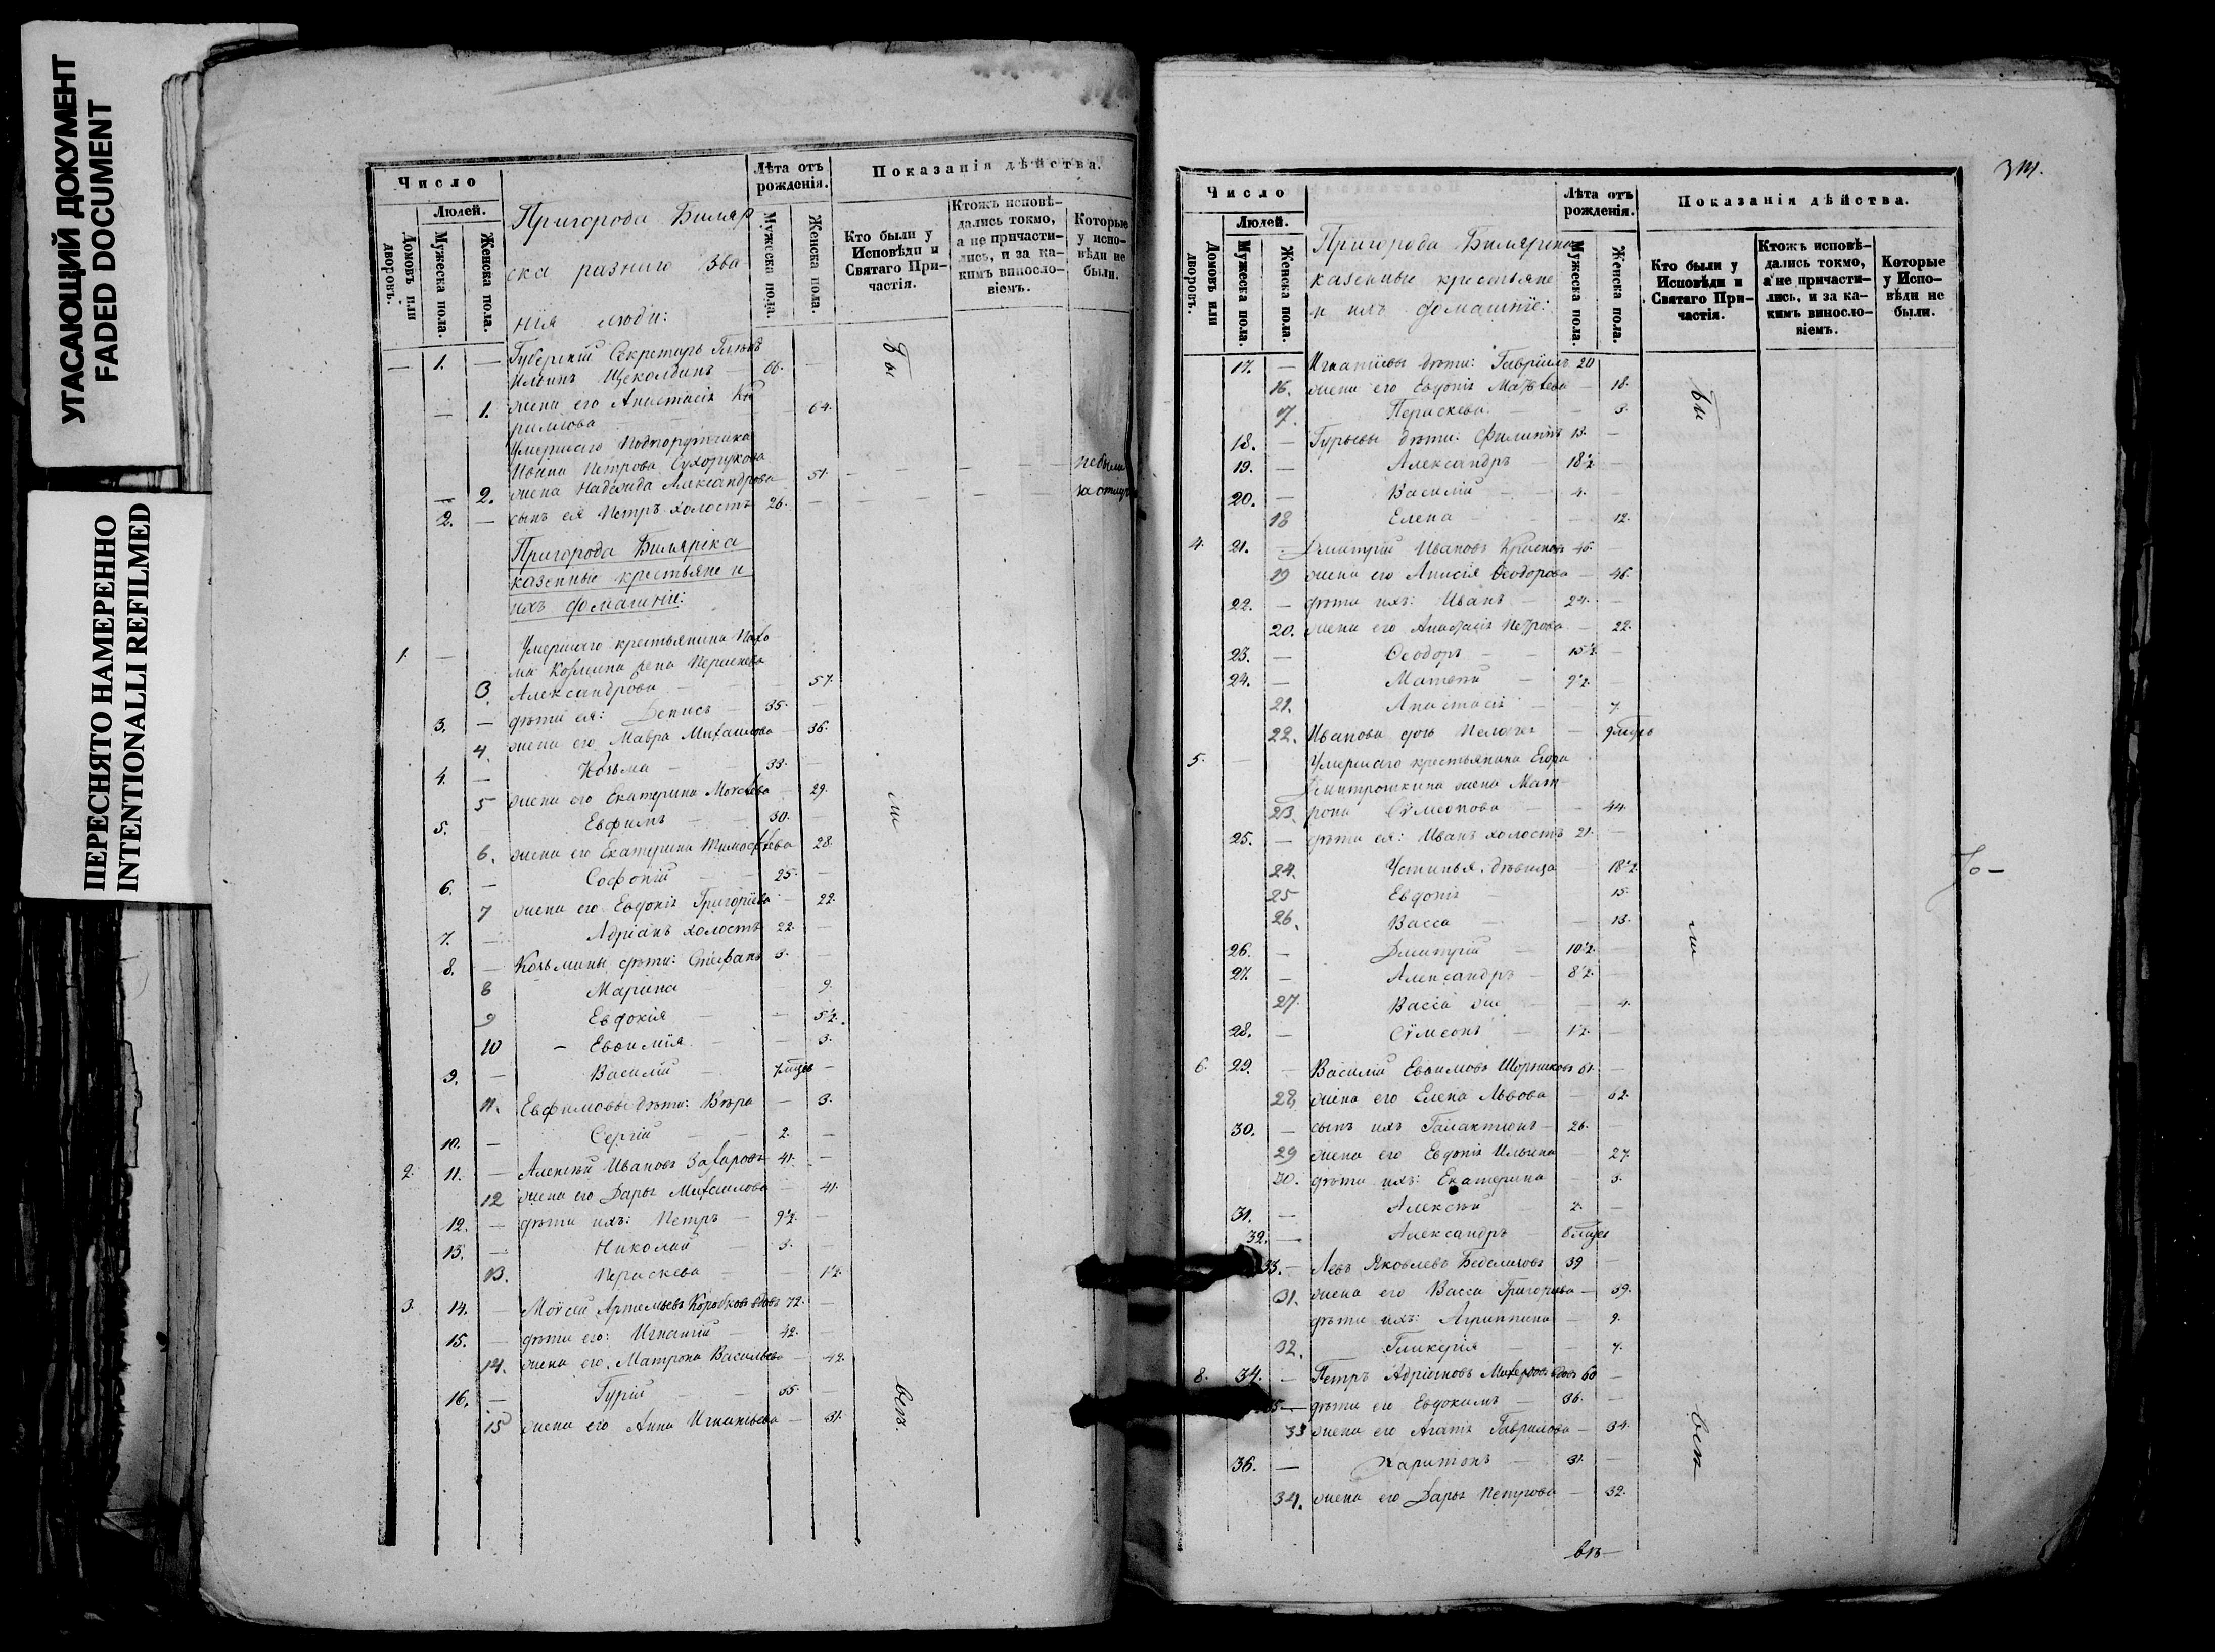 УГАСАЮЩИЙ ДОКУМЕНТ
FADED DOCUMENT
ПЕРЕСНЯТО НАМЕРЕННО
INTENTIONALLI REFILMED
Число
Людей.
Домовъ или дворовъ.
Мужеска пола.
Женска пола.
Лѣта отъ рожденія.
Мужеска пола.
Женска пола.
Показанія дѣйства.
Кто были у Исповѣди и Святаго Причастія.
Ктожъ исповѣ-
дались токмо,
а не причасти-
лись, и за ка-
кимъ виносло-
віемъ.
Которые
у испо-
вѣди не
были.
Пригорода Биляр
ска разнаго зва
нія люди:
— 1. — Губерскій Секретарь
Ильинъ Щеколдинъ — 66. —
— 1. жена его Анастасія Ки
рилова — 64.
Умершаго Подпоручика
Ивана Петрова Сухорукова
— 2. жена Надежда Александрова 51. — — — небыли
2. — сынъ ея Петръ холостъ 26. — — — —
Пригорода Билярска
казенные крестьяне и
ихъ домашніе:
1. — Умершаго крестьянина Пахо
ма Козмина жена
3. Александрова — 57.
3. — дѣти ея: Денисъ 35. —
4. жена его Мавра Михаилова — 36.
4. — Козьма — 33. —
5 жена его Екатерина — 29.
5. Евфимъ — 30. —
6. жена его Екатерина Тимофѣева 28.
6. — Софоній — 25. —
7 жена его Евдокія Григоріева — 22.
7. — Адріанъ холостъ 22. —
8. — Козьмины дѣти: Стефанъ 3. —
8 Марина — 9.
9 Евдокія — 5½.
10 — Евѳимія — 3.
9. — Василій — —
11. Евфимовы дѣти: Вѣра — 3.
10. — Сергій — 2. —
2. 11. — Алексѣй Ивановъ Захаровъ 41. —
12 жена его Дарья Михаилова — 41.
12. — дѣти ихъ: Петръ — 9½. —
13. — Николай — 3. —
13. Параскева — 1½.
3. 14. — Моѵсей Артемьевъ Коробковъ вдовъ 72. —
15. — дѣти его: Игнатій — 42. —
14. жена его Матрона Васильева — 42.
16. — Гурій — 35. —
15 жена его Анна Игнатьева — 31.
бы
ли
всѣ.
Число
Людей.
Домовъ или дворовъ.
Мужеска пола.
Женска пола.
Лѣта отъ рожденія.
Мужеска пола.
Женска пола.
Показанія дѣйства.
Кто были у Исповѣди и Святаго Причастія.
Ктожъ исповѣ-
дались токмо,
а не причасти-
лись, и за ка-
кимъ виносло-
віемъ.
Которые
у Испо-
вѣди не
были.
Пригорода Билярска
казенные крестьяне
и ихъ домашніе:
17. — Игнатіевы дѣти: Гавріилъ 20
16. жена его Евдокія Матѳеева — 18.
17. Параскева — 3.
18. — Гурьевы дѣти: Филиппъ 13. —
19. — Александръ — —
20. — Василій — 4. —
18 Елена — 12.
4. 21. — Димитрій Ивановъ 45. —
19 жена его Анисія Ѳеодорова — 46.
22. — дѣти ихъ: Иванъ — 24. —
20. жена его Анастасія Петрова — 22.
23. — Ѳеодоръ — 15½. —
24. — Матѳей — 9½. —
21. Анастасія — 7.
22. Иванова дочь Пелагія —
5. — Умершаго крестьянина Егора
Димитрошкина жена Мат
23. рона Сѵмеонова — 44.
25. — дѣти ея: Иванъ холостъ 21. —
24. Устинья дѣвица — 18½.
25 Евдокія — 15.
26. Васса — 13.
26. — Дмитрій — 10½. —
27. — Александръ — 8½. —
27. Васса — 4.
28. — Сѵмеонъ — 1½. —
6. 29. — Василій Евѳимовъ Шорниковъ 61. —
28. жена его Елена Львова — 62.
30. — сынъ ихъ Галактіонъ — 26. —
29 жена его Евдокія Ильина — 27.
30. дѣти ихъ: Екатерина — 3.
31. — Алексѣй — 2. —
32. — Александръ —
33. — Левъ Яковлевъ 39 —
31. жена его Васса Григорьева — 39.
дѣти ихъ: Агриппина — 9.
32. Гликерія — 7.
8. 34. — Петръ Адріановъ вдовъ 60 —
35 — дѣти его Евдокимъ — 36. —
33 жена его Агаѳія Гаврилова — 34.
36. — Харитонъ — 31. —
34. жена его Дарья Петрова — 32.
бы
ли
всѣ